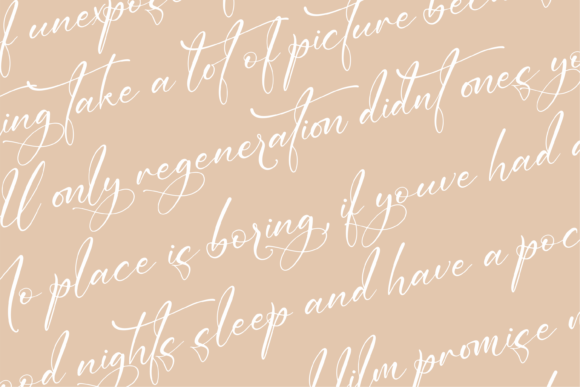 f unexpose
ing take a lot of picture bec
ll only regeneration didnt ones yo
No place is boring, if youve had a
ood nights sleep and have a poc
Film promise